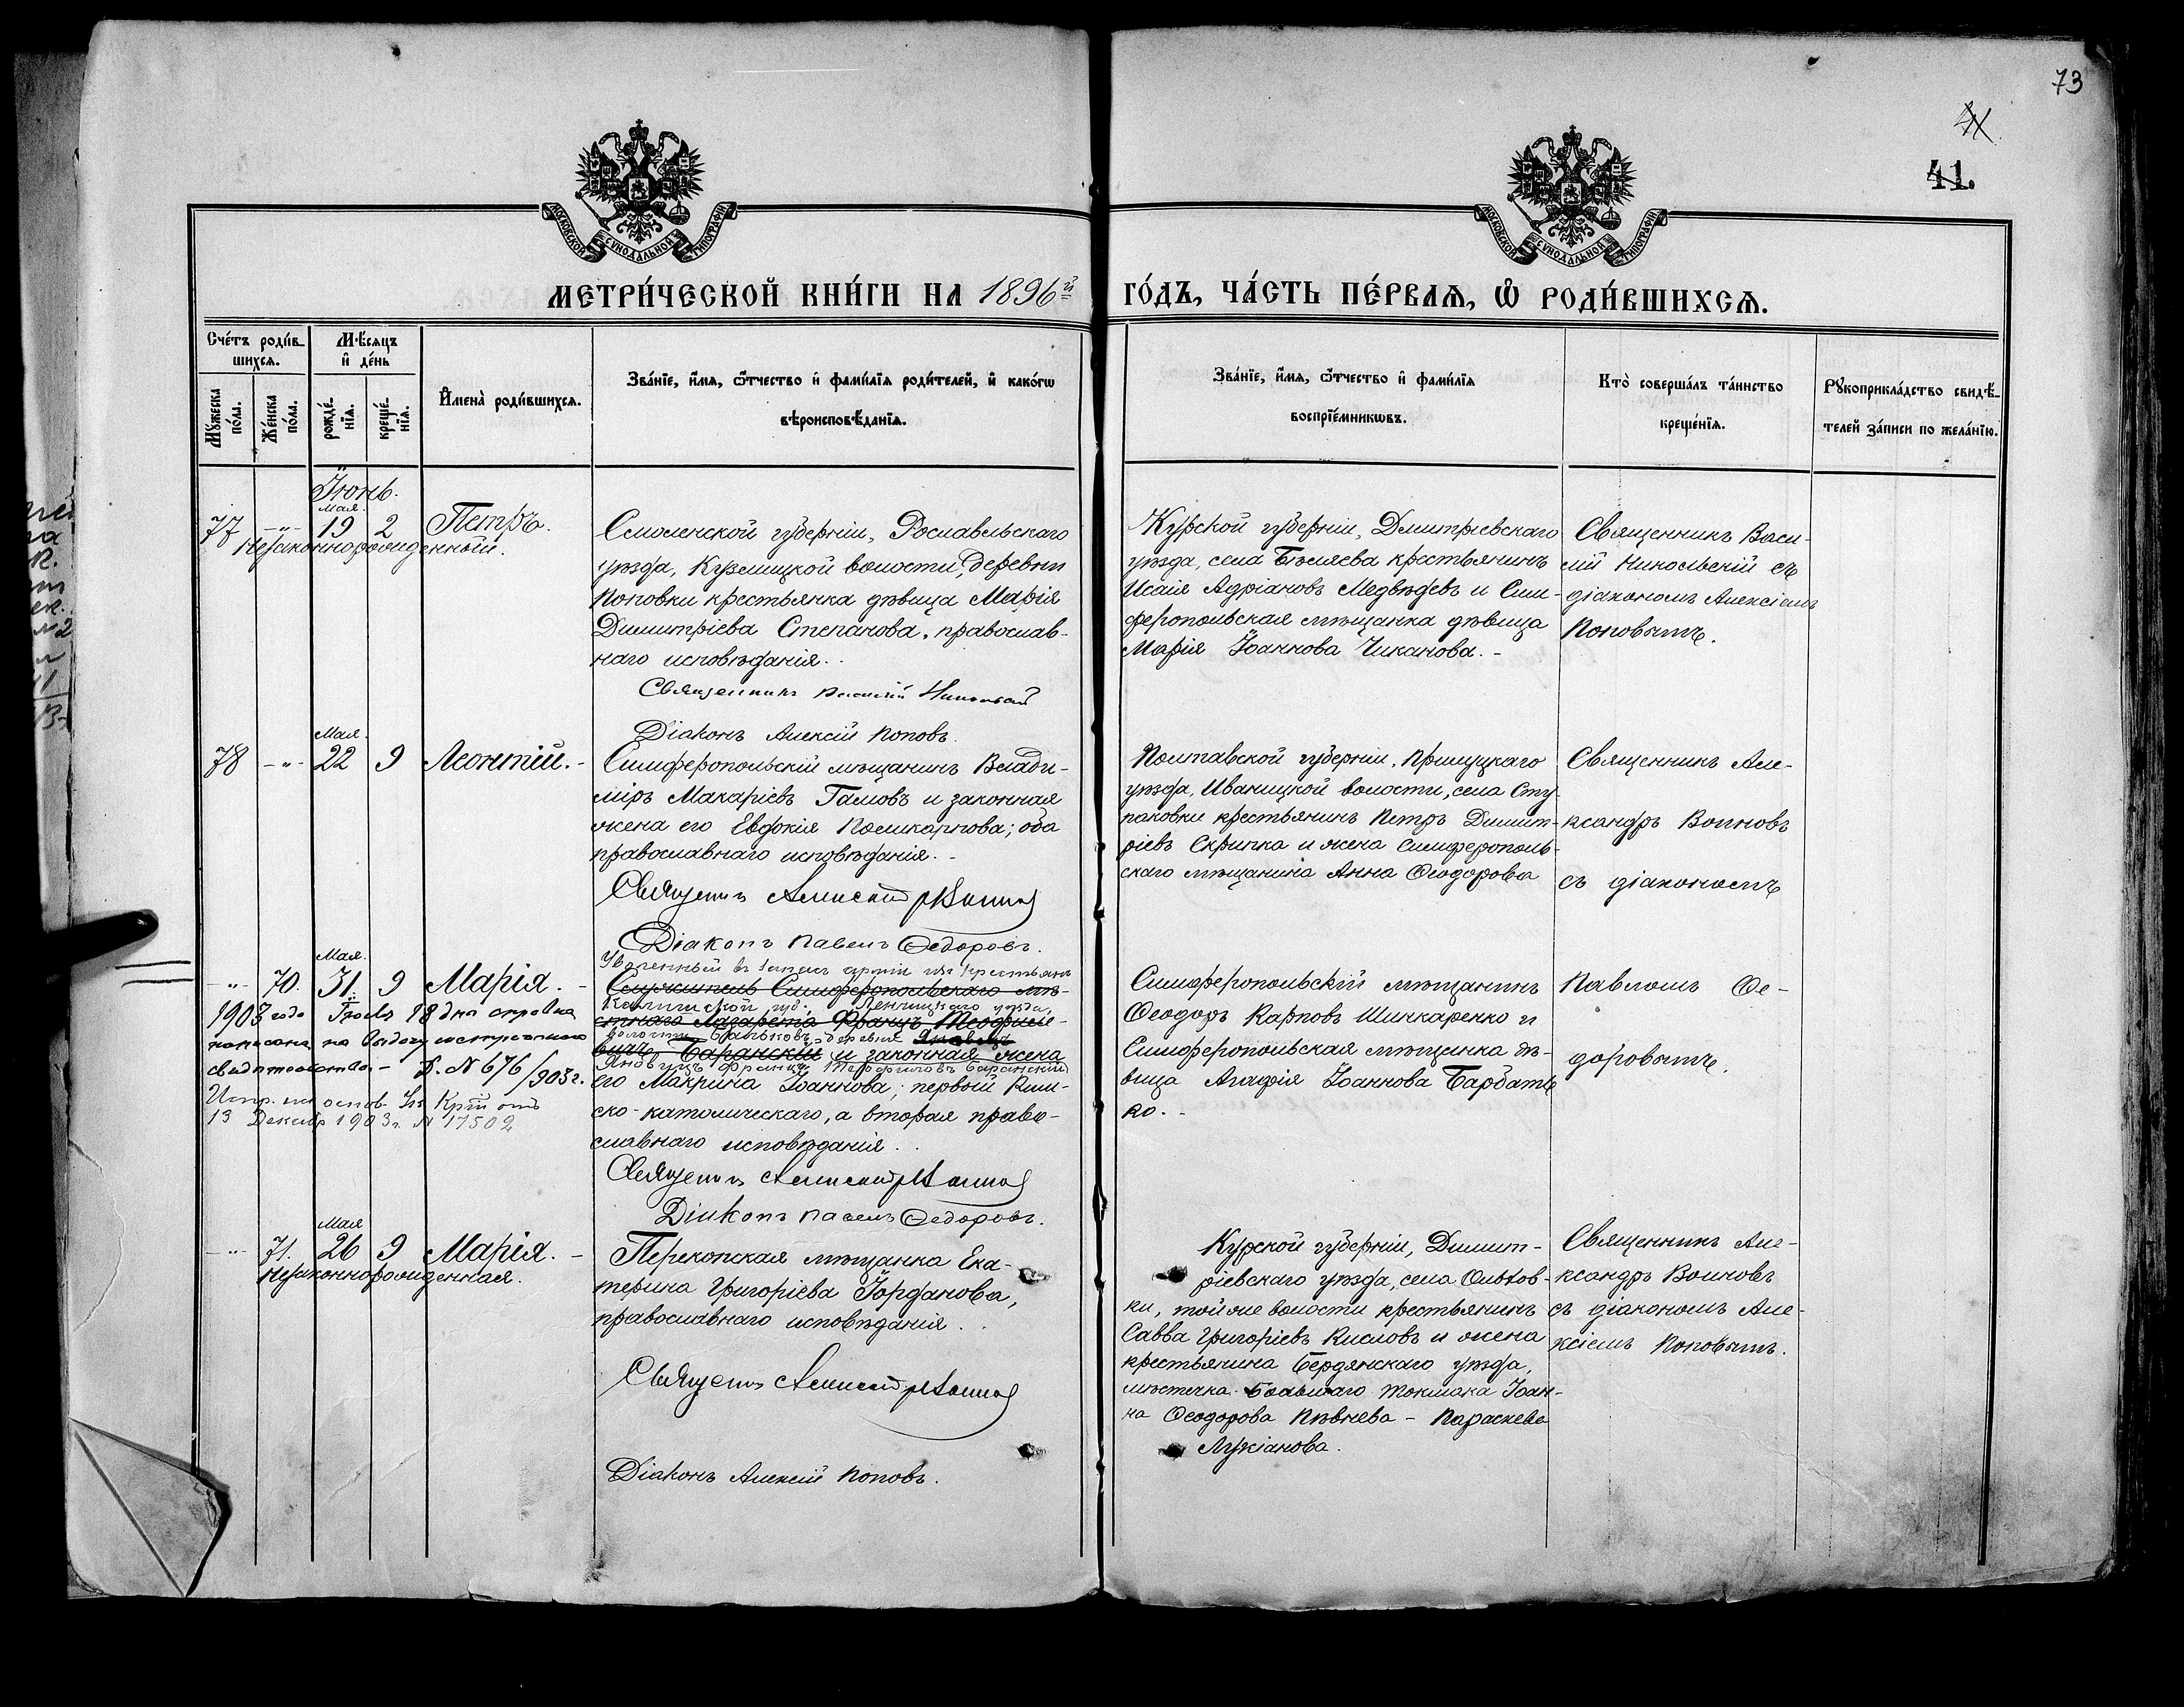 73
41
41.
МОСКОВСКОЙ СѴНОДАЛЬНОЙ ТИПОГРАФІИ
МОСКОВСКОЙ СѴНОДАЛЬНОЙ ТИПОГРАФІИ
МЕТРИ́ЧЕСКОЙ КНИ́ГИ НА 1896й
ГО́ДЪ, ЧА́СТЬ ПЕ́РВАѦ, Ѽ РОДИ́ВШИХСѦ.
Сче́тъ роди́в-
шихсѧ.
Мꙋ́жеска по́ла.
Же́нска по́ла.
Мѣ́сѧцъ
и҆ де́нь
рожде́-
нїѧ.
креще́-
нїѧ.
И҆мена̀ роди́вшихсѧ.
Зва́нїе, и҆́мѧ, ѻ҆́тчество и҆ фами́лїѧ роди́телей, и҆ како́гѡ
вѣроисповѣ́данїѧ.
Зва́нїе, и҆́мѧ, ѻ҆́тчество и҆ фами́лїѧ
воспрїе́мникѡвъ.
Кто̀ соверша́лъ та́инство
креще́нїѧ.
Рꙋкоприкла́дство свидѣ́-
телей за́писи по жела́нїю.
Іюнь.
Мая.
77 -"- 19 2 Петръ.
Незаконнорожденный.
Смоленской губерніи, Рославльскаго
уѣзда, Кузмицкой волости, деревни
Поповки крестьянка дѣвица Марія
Димитріева Степанова, православ-
наго исповѣданія.
Священникъ Василій Никольскій
Діаконъ Алексій Поповъ.
Курской губерніи, Дмитріевскаго
уѣзда, села Бѣляева крестьянинъ
Исаія Адріановъ Медвѣдевъ и Сим-
феропольская мѣщанка дѣвица
Марія Іоаннова Чиканова.-
Священникъ Васи-
лій Никольскій съ
діакономъ Алексіемъ
Поповымъ.
Мая.
78 -"- 22 9 Леонтій.-
Симферопольскій мѣщанинъ Влади-
міръ Макаріевъ Гамовъ и законная
жена его Евдокія Поликарпова; оба
православнаго исповѣданія.-
Священникъ Александръ Воиновъ
Діаконъ Павелъ Ѳедоровъ.
Полтавской губерніи, Прилуцкаго
уѣзда, Иваницкой волости, села Сту-
паковки крестьянинъ Петръ Димит-
ріевъ Скрипка и жена Симферополь-
скаго мѣщанина Анна Ѳеодорова
Священникъ Але-
ксандръ Воиновъ
съ діакономъ
Мая.
-"- 70. 31. 9 Марія.-
1903 года Іюля 18 дня справка
написана на выдачу метрическаго
свидѣтельства - Д. № 676/903 г.
Испр. на основ. Ук. Крт от
13 Декабр 1903 г. № 17502
Уволенный въ запасъ арміи изъ крестьянъ
Служитель Симферопольскаго мѣ-
Калишской губ., Ленчицкаго уѣзда,
стнаго Лазарета Францъ Теофило-
волости Бальковъ, деревня
вичъ Баранскій и законная жена
Францъ Теофиловъ Баранскій
его Макрина Іоаннова; первый Рим-
ско-католическаго, а вторая право-
славнаго исповѣданія.
Священникъ Александръ Воиновъ
Діаконъ Павелъ Ѳедоровъ.
Симферопольскій мѣщанинъ
Ѳеодоръ Карповъ Шинкаренко и
Симферопольская мѣщанка дѣ-
вица Агафія Іоаннова Барбать
ко.-
Павломъ Ѳе-
доровымъ.
Мая
-"- 71. 26 9 Марія.-
Незаконнорожденная.
Перекопская мѣщанка Ека-
терина Григоріева Іорданова,
православнаго исповѣданія.
Священникъ Александръ Воиновъ
Діаконъ Алексій Поповъ.
Курской губерніи, Димит-
ріевскаго уѣзда, села Ольхов-
ки, той же волости крестьянинъ
Савва Григоріевъ Кисловъ и жена
крестьянина Бердянскаго уѣзда,
мѣстечка Большаго Токмака Іоан-
на Ѳеодорова Пѣвнева - Параскева
Лукіанова.
Священникъ Але-
ксандръ Воиновъ
съ діакономъ Але-
ксіемъ Поповымъ.